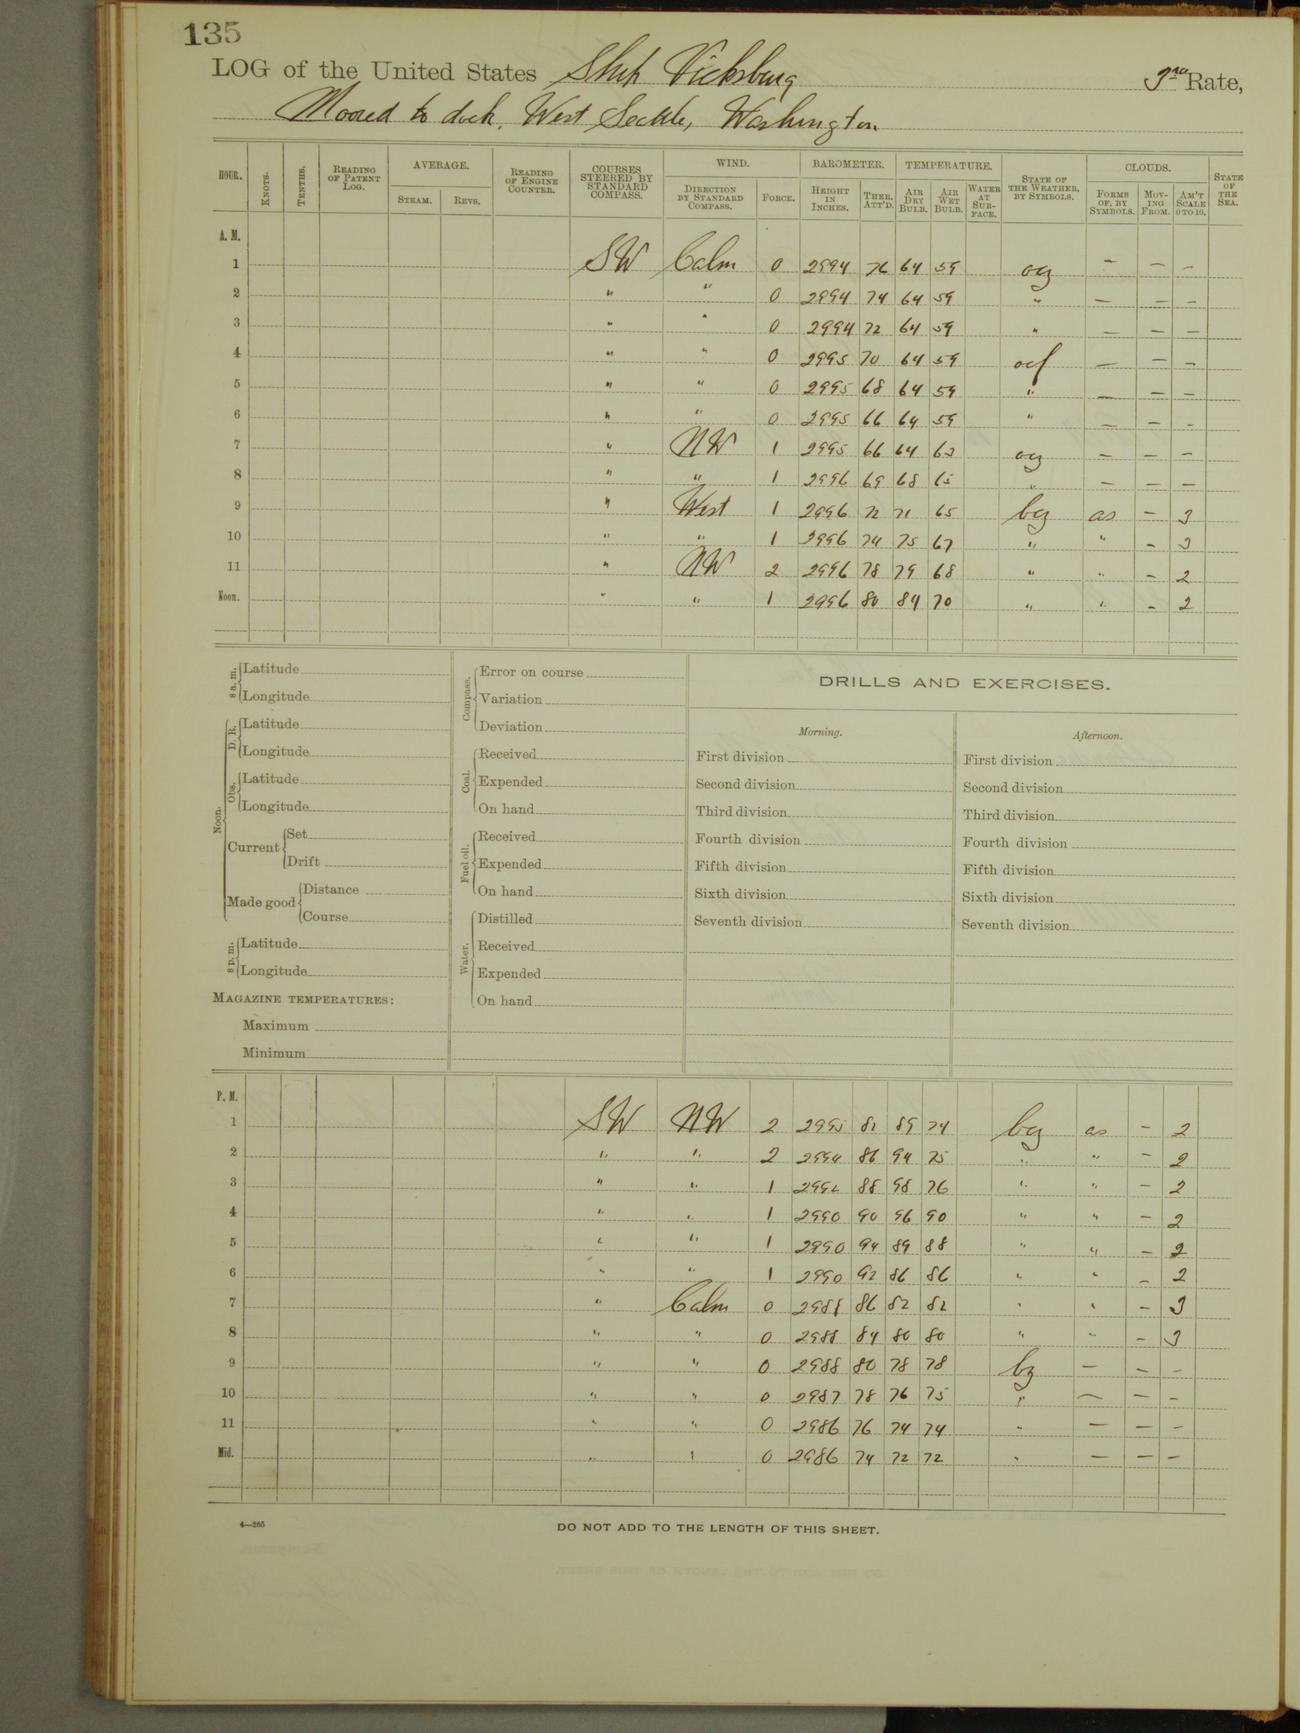 135
LOG of the United States Ship Vicksburg 3rd Rate,
Moored to dock, West Seattle, Washington
HOUR. KNOTS. TENTHS. READING OF PATENT LOG. AVERAGE. STEAM. REVS. READING OF ENGINE COUNTER. COURSES STEERED BY STANDARD COMPASS. WIND. DIRECTION BY STANDARD COMPASS. FORCE. BAROMETER. HEIGHT IN INCHES. THER. ATT'D. TEMPERATURE. AIR DRY BULB. AIR WET BULB. WATER AT SURFACE. STATE OF THE WEATHER, BY SYMBOLS. CLOUDS. FORMS OF, BY SYMBOLS. MOVING FROM. AM'T SCALE 0 TO 10. STATE OF THE SEA.
A. M.
1 SW Calm 0 2994 76 64 59 ocg — — —
2 " " 0 2994 74 64 59 " — — —
3 " " 0 2994 72 64 59 " — — —
4 " " 0 2995 70 64 59 ocf — — —
5 " " 0 2995 68 64 59 " — — —
6 " " 0 2995 66 64 59 " — — —
7 " NW 1 2995 66 64 63 — — —
8 " " 1 2996 69 68 65 " — — —
9 " West 1 2996 72 71 65 bcz as — 3
10 " " 1 2996 74 75 67 " " — 3
11 " NW 2 2996 78 79 68 " " — 2
Noon. " " 1 2996 80 84 70 " " — 2
8 a. m. Latitude
Longitude
Noon.
D. R. Latitude
Longitude
Obs. Latitude
Longitude
Current Set
Drift
Made good Distance
Course
8 p. m. Latitude
Longitude
MAGAZINE TEMPERATURES:
Maximum
Minimum
Compass. Error on course
Variation
Deviation
Coal. Received
Expended
On hand
Fuel oil. Received
Expended
On hand
Water. Distilled
Received
Expended
On hand
DRILLS AND EXERCISES.
Morning.
First division
Second division
Third division
Fourth division
Fifth division
Sixth division
Seventh division
Afternoon.
First division
Second division
Third division
Fourth division
Fifth division
Sixth division
Seventh division
P. M.
1 SW NW 2 2995 82 89 74 bcz as — 2
2 " " 2 2994 86 94 75 " " — 2
3 " " 1 2992 88 98 76 " " — 2
4 " " 1 2990 90 96 90 " " — 2
5 " " 1 2990 94 89 88 " " — 2
6 " " 1 2990 92 86 86 " " — 2
7 " Calm 0 2988 86 82 82 " " — 3
8 " " 0 2988 84 80 80 " " — 3
9 " " 0 2988 80 78 78 bz — — —
10 " " 0 2987 78 76 75 " — — —
11 " " 0 2986 76 74 74 " — — —
Mid. " " 0 2986 74 72 72 " — — —
4—265
DO NOT ADD TO THE LENGTH OF THIS SHEET.